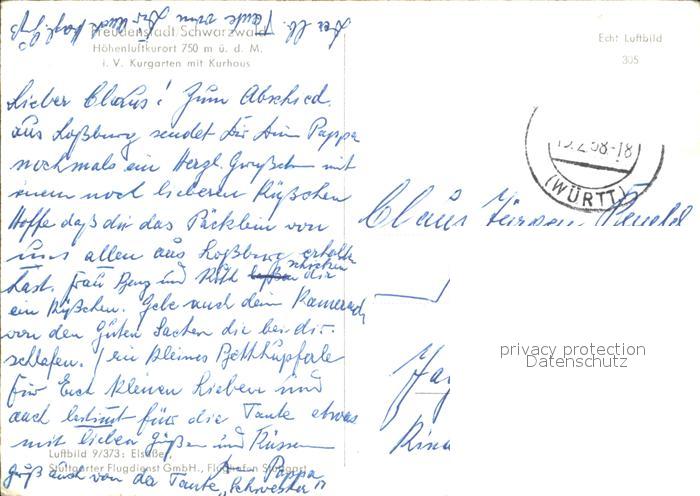 Freudenstadt Schwarzwald
Höhenluftkurort 750 m ü. d. M.
i. V. Kurgarten mit Kurhaus
Lieber Claus! Zum Abschied
aus Loßburg sendet Dir Dein Pappa
nochmals ein Herzl. Grüßchen mit
einem noch lieberen Küßchen
Hoffe daß dir das Päcklein von
uns allen aus Loßburg erhalten
hast. Frau und Ruth schicken dir
ein Küßchen. Gebe auch dein Kamerad
von den Guten Sachen die bei dir
schlafen. / ein kleines Betthupferle
für Euch kleinen Lieben und
auch bestimmt für die Tante etwas
mit lieben Grüßen und Küssen
Pappa
Gruß auch von der Tante „Schwester"
Luftbild 9/373: Elsäßer,
Stuttgarter Flugdienst GmbH., Flughafen Stuttgart
Echt Luftbild
305
.2.58-18
(WÜRTT)
Claus Jürgen
privacy protection
Datenschutz